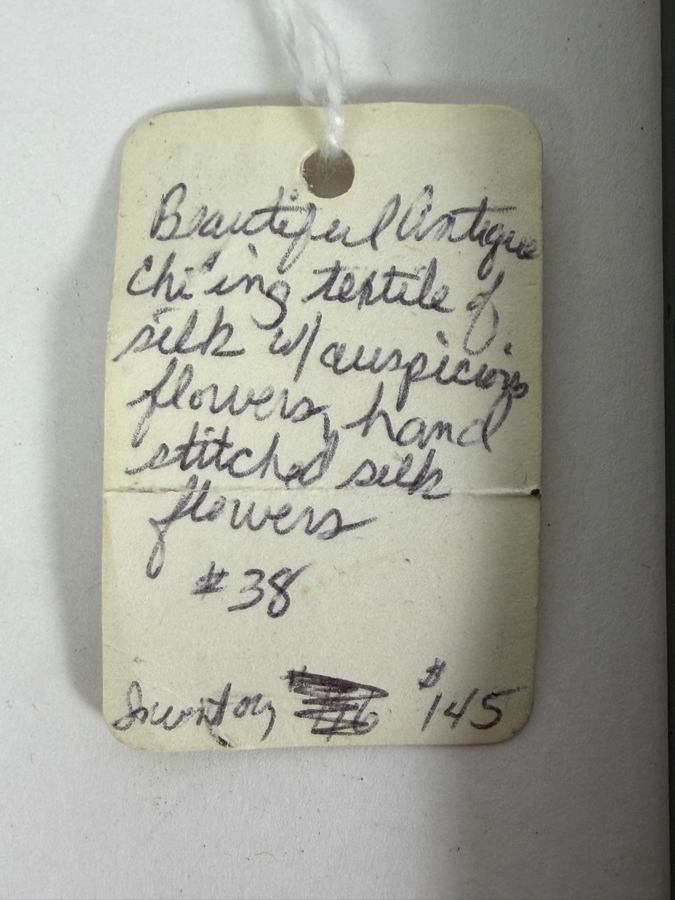 Beautiful Antique
Chi'ing textile of
silk w/ auspicious
flowers, hand
stitched silk
flowers
#38
Inventory $145